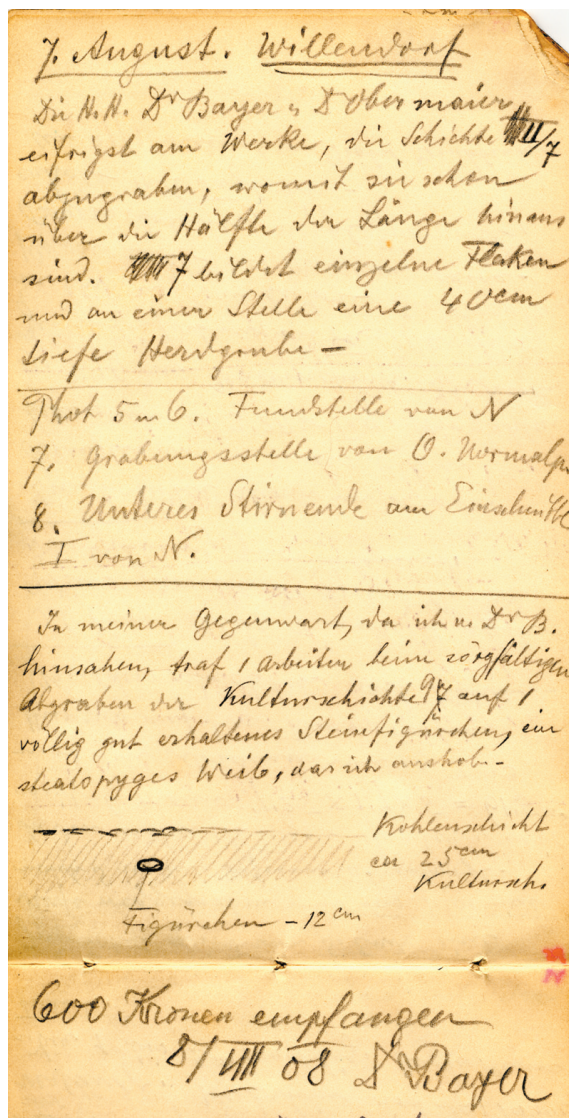 7. August. Willendorf
Die H.H. Dr Bayer u Dr Obermaier
eifrigst am Werke, die Schichte II/7
abzugraben, womit sie schon
über die Hälfte der Länge hinaus
sind. 7 bildet einzelne Flecken
und an einer Stelle eine 40cm
tiefe Herdgrube –
Phot 5 u 6. Fundstelle von N
7. Grabungsstelle von O.
8. Unteres Stirnende am Einschnitte
I von N.
In meiner Gegenwart, da ich u. Dr B.
hinsahen, traf 1 Arbeiter beim sorgfältigen
Abgraben der Kulturschichte auf 1
völlig gut erhaltenes Steinfigürchen, ein
steatopyges Weib, das ich aushob. –
Kohlenschicht
ca 25cm
Kultursch.
Figürchen – 12 cm
600 Kronen empfangen
8/VIII 08 Dr Bayer